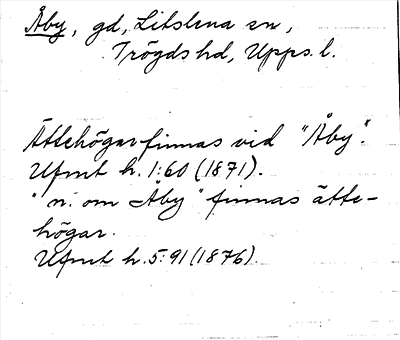 Åby, gd, Litslena sn,
Trögds hd, Upps. l.
Ättehögar finnas vid "Åby".
Ufmt h. 1:60 (1871).
" n. om Åby" finnas ätte-
högar.
Ufmt h. 5:91 (1876).